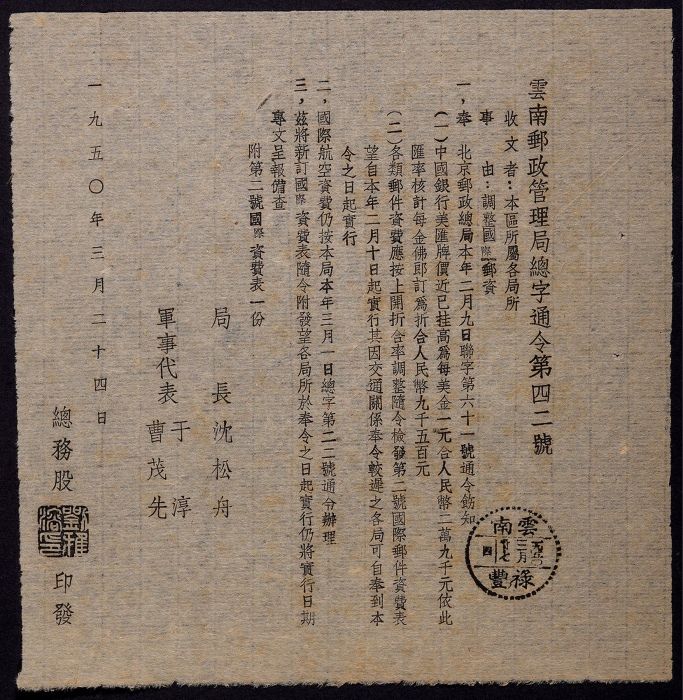 雲南郵政管理局總字通令第四二號
收文者：本區所屬各局所
事　由：調整國際郵資
一，奉　北京郵政總局本年二月九日聯字第六十一號通令飭知
(一)中國銀行美匯牌價近已挂高爲每美金一元合人民幣二萬九千元依此
匯率核計每金佛郎訂爲折合人民幣九千五百元
(二)各類郵件資費應按上開折合率調整隨令檢發第二號國際郵件資費表
望自本年二月十日起實行其因交通關係奉令較遲之各局可自奉到本
令之日起實行
二，國際航空資費仍按本局本年三月一日總字第二二號通令辦理
三，茲將新訂國際資費表隨令附發望各局所於奉令之日起實行仍將實行日期
專文呈報備查
附第二號國際資費表一份
局　長　沈松舟
軍事代表　于　淳
曹茂先
一九五〇年三月二十四日
總務股　印發
雲南
三月
廿七
四
祿豐